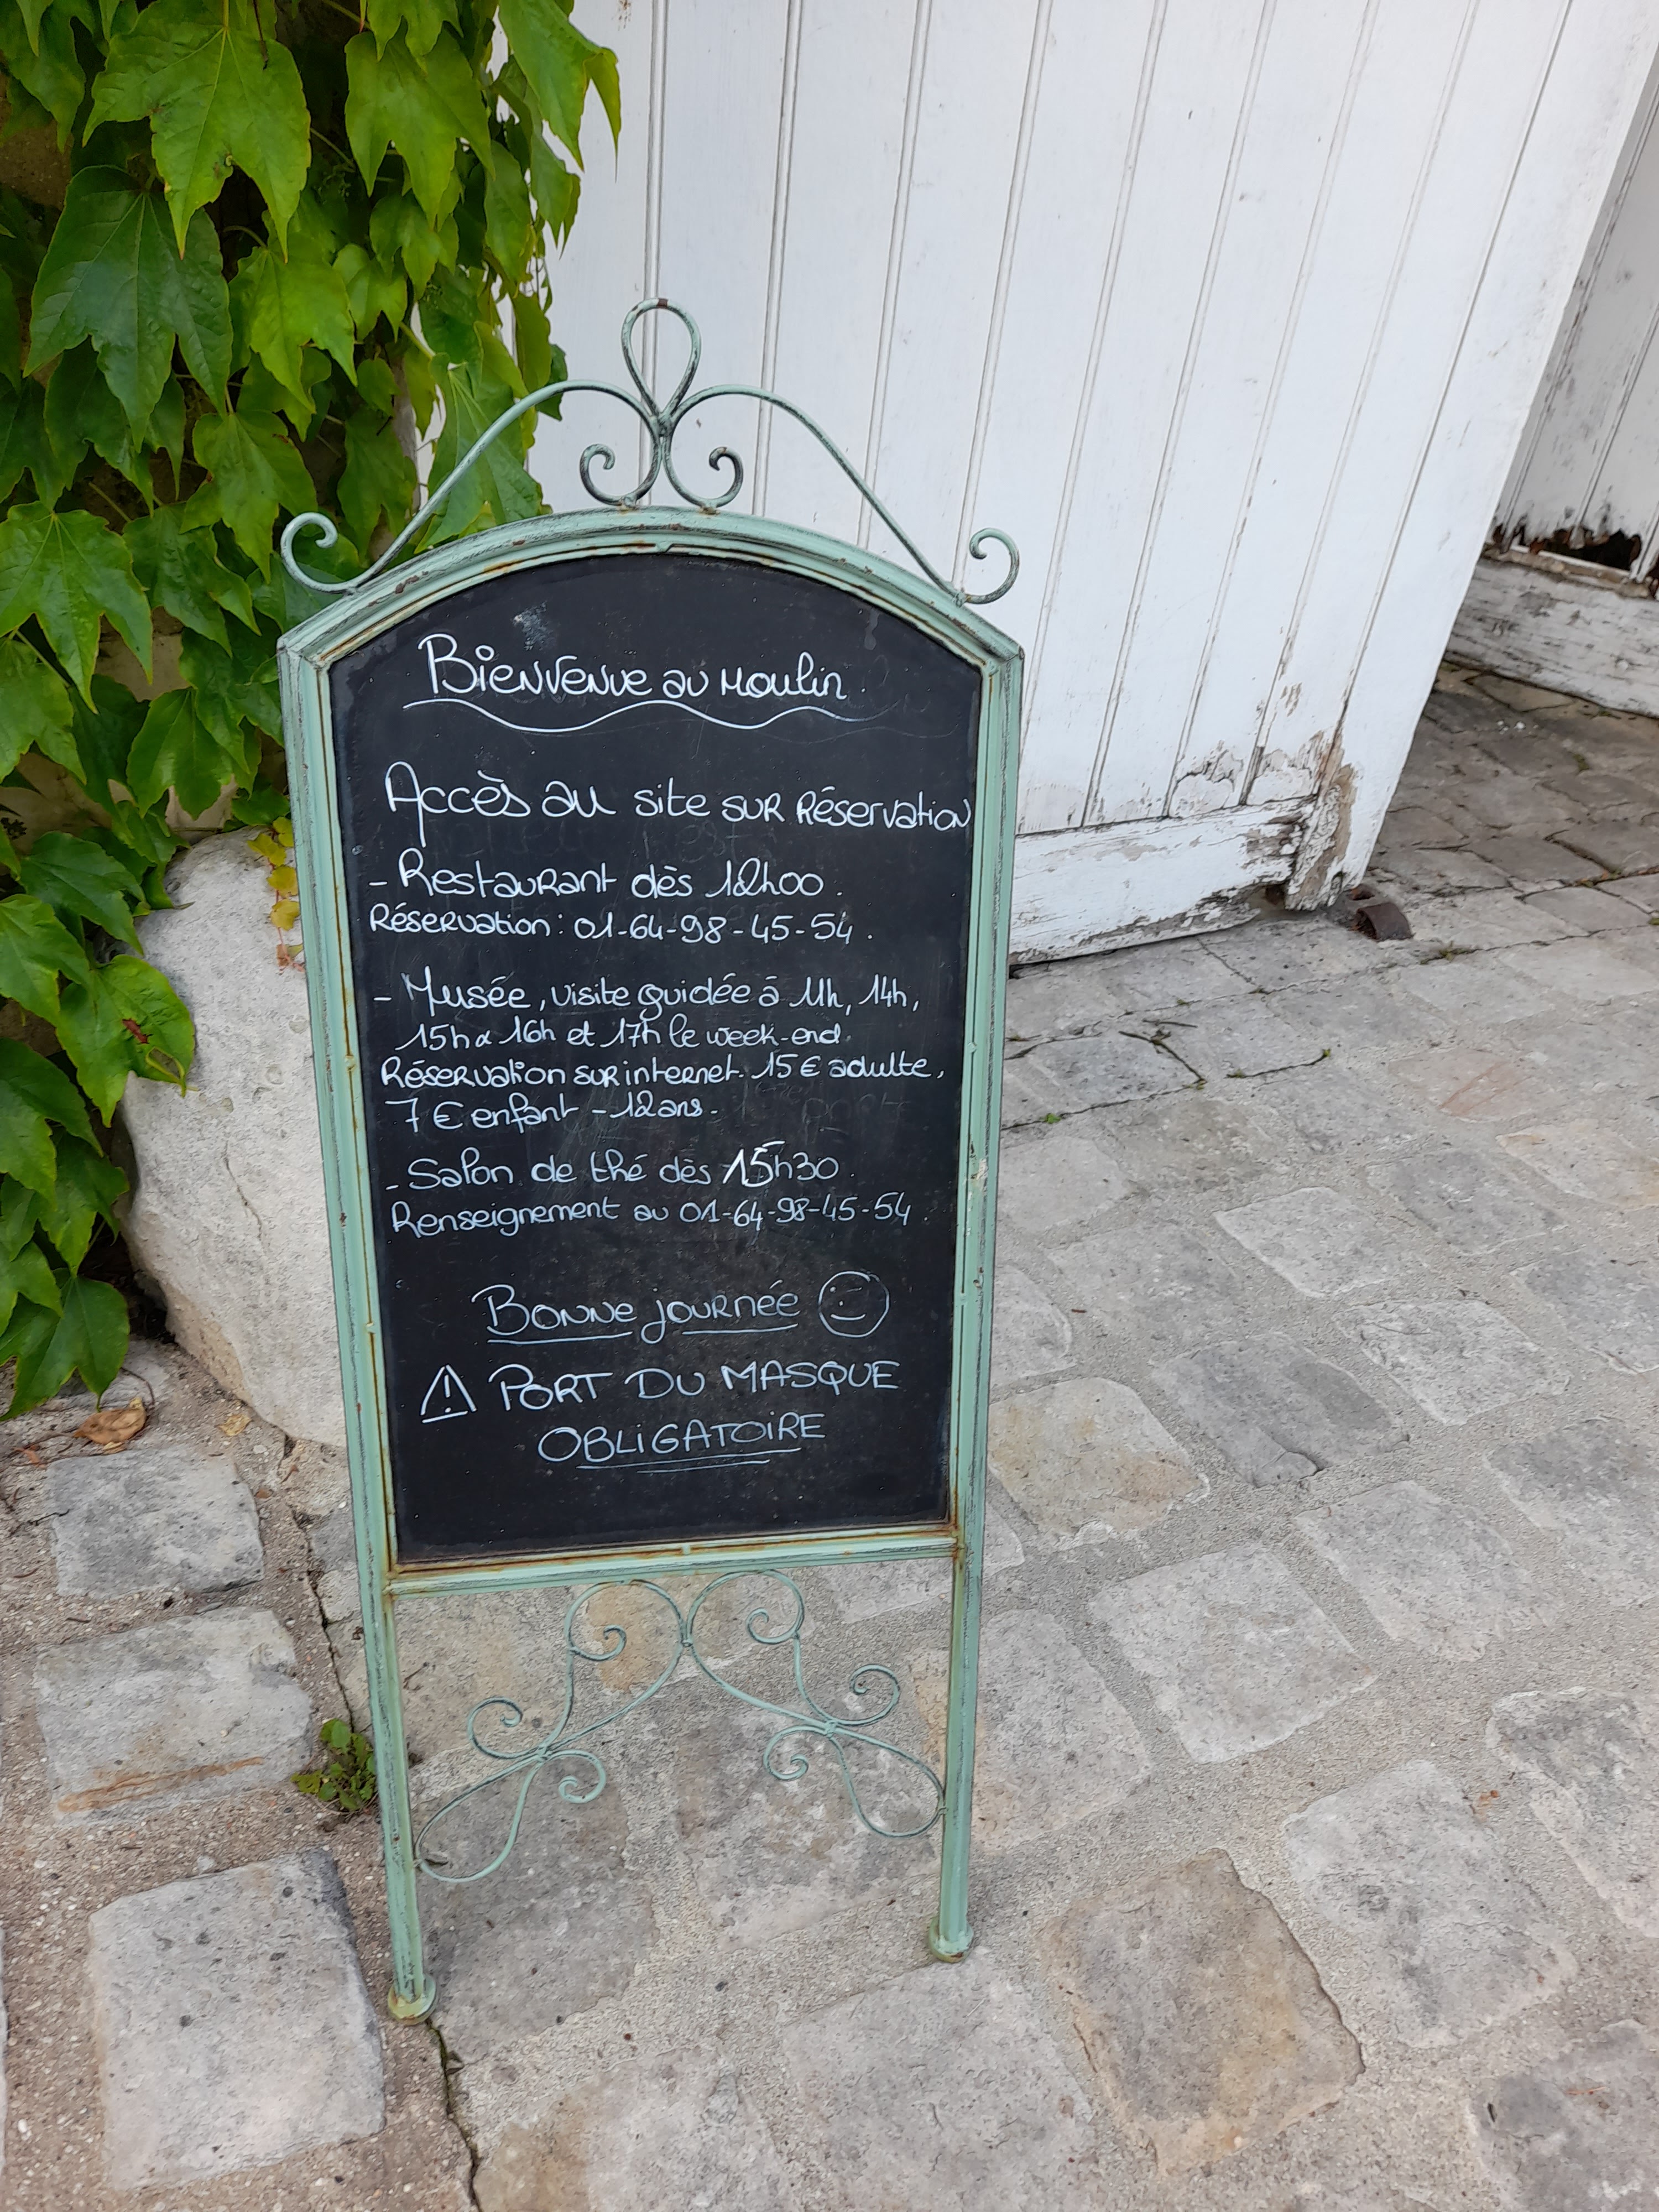 Bienvenue au Moulin.
Accès au site sur Réservation
- Restaurant dès 12h00.
Réservation : 01-64-98-45-54.
- Musée, visite guidée à 11h, 14h,
15h & 16h et 17h le week-end.
Réservation sur internet. 15 € adulte,
7 € enfant - 12 ans.
- Salon de thé dès 15h30.
Renseignement au 01-64-98-45-54.
Bonne journée
⚠ PORT DU MASQUE
OBLIGATOIRE